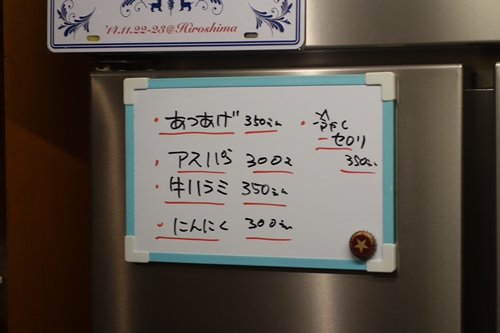 '14.11.22-23@Hiroshima
・あつあげ 350えん
・アスパラ 300え
・牛ハラミ 350えん
・にんにく 300えん
・冷やし
セロリ
350えん